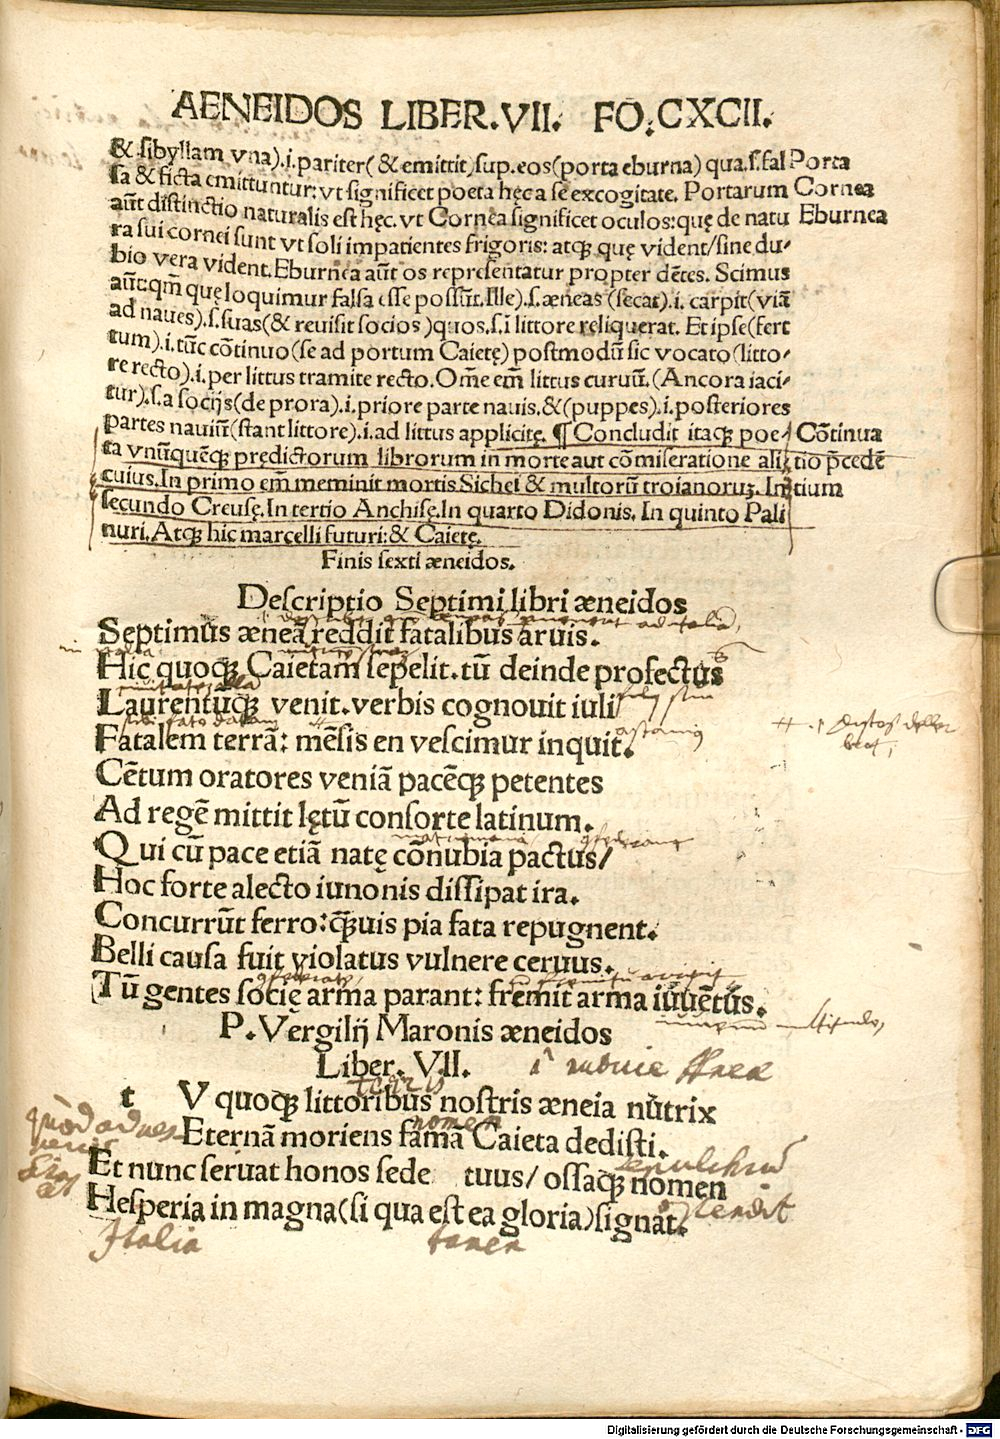 AENEIDOS LIBER.VII. FO.CXCII.
& sibyllam vna).i.pariter( & emittit)sup.eos(porta eburna) qua.s.fal Porta
sa & ficta emittuntur:vt significet poeta hęc a se excogitate. Portarum Cornea
aūt distinctio naturalis est hęc. vt Cornea significet oculos:quę de natu Eburnea
ra sui cornei sunt vt soli impatientes frigoris: atqꝫ quę vident/sine du-
bio vera vident.Eburnea aūt os representatur propter dētes. Scimus
aūt:qm̄ quę loquimur falsa esse possūt.Ille).s.æneas (secat).i. carpit(viā
ad naues).s.suas(& reuisit socios )quos.s.ī littore reliquerat. Et ipse(fert
tum).i.tūc cōtinuo(se ad portum Caietę) postmodū sic vocato(litto-
re recto).i.per littus tramite recto.Om̄e em̄ littus curuū.(Ancora iaci-
tur).s.a socijs(de prora).i.priore parte nauis.&(puppes).i.posteriores
partes nauiū(stant littore).i.ad littus applicitę. ¶ Concludit itaqꝫ poe- Cōtinua
ta vnūquēqꝫ prędictorum librorum in morte aut cōmiseratione ali- tio p̄cedē
cuius.In primo em̄ meminit mortis Sichei & multorū troianoruꝫ. In tium
secundo Creusę.In tertio Anchisę.In quarto Didonis. In quinto Pali
nuri.Atqꝫ hic marcelli futuri:& Caietę.
Finis sexti æneidos.
Descriptio Septimi libri æneidos
Septimus æneā reddit fatalibus aruis.
Hic quoqꝫ Caietam sepelit.tū deinde profectus
Laurentuqꝫ venit.verbis cognouit iuli
Fatalem terrā: mēsis en vescimur inquit.
Cētum oratores veniā pacēqꝫ petentes
Ad regē mittit lętū consorte latinum.
Qui cū pace etiā natę cōnubia pactus/
Hoc forte alecto iunonis dissipat ira.
Concurrūt ferro:q̄uis pia fata repugnent.
Belli causa fuit violatus vulnere ceruus.
Tū gentes socię arma parant: fremit arma iuuētus.
P.Vergilij Maronis æneidos
Liber. VII.
t V quoqꝫ littoribus nostris æneia nūtrix
nomen
Eternā moriens famā Caieta dedisti.
sepulchrū
Et nunc seruat honos sede tuus/ ossaqꝫ nomen
ostendit
Hesperia in magna(si qua est ea gloria)signāt.
Italia